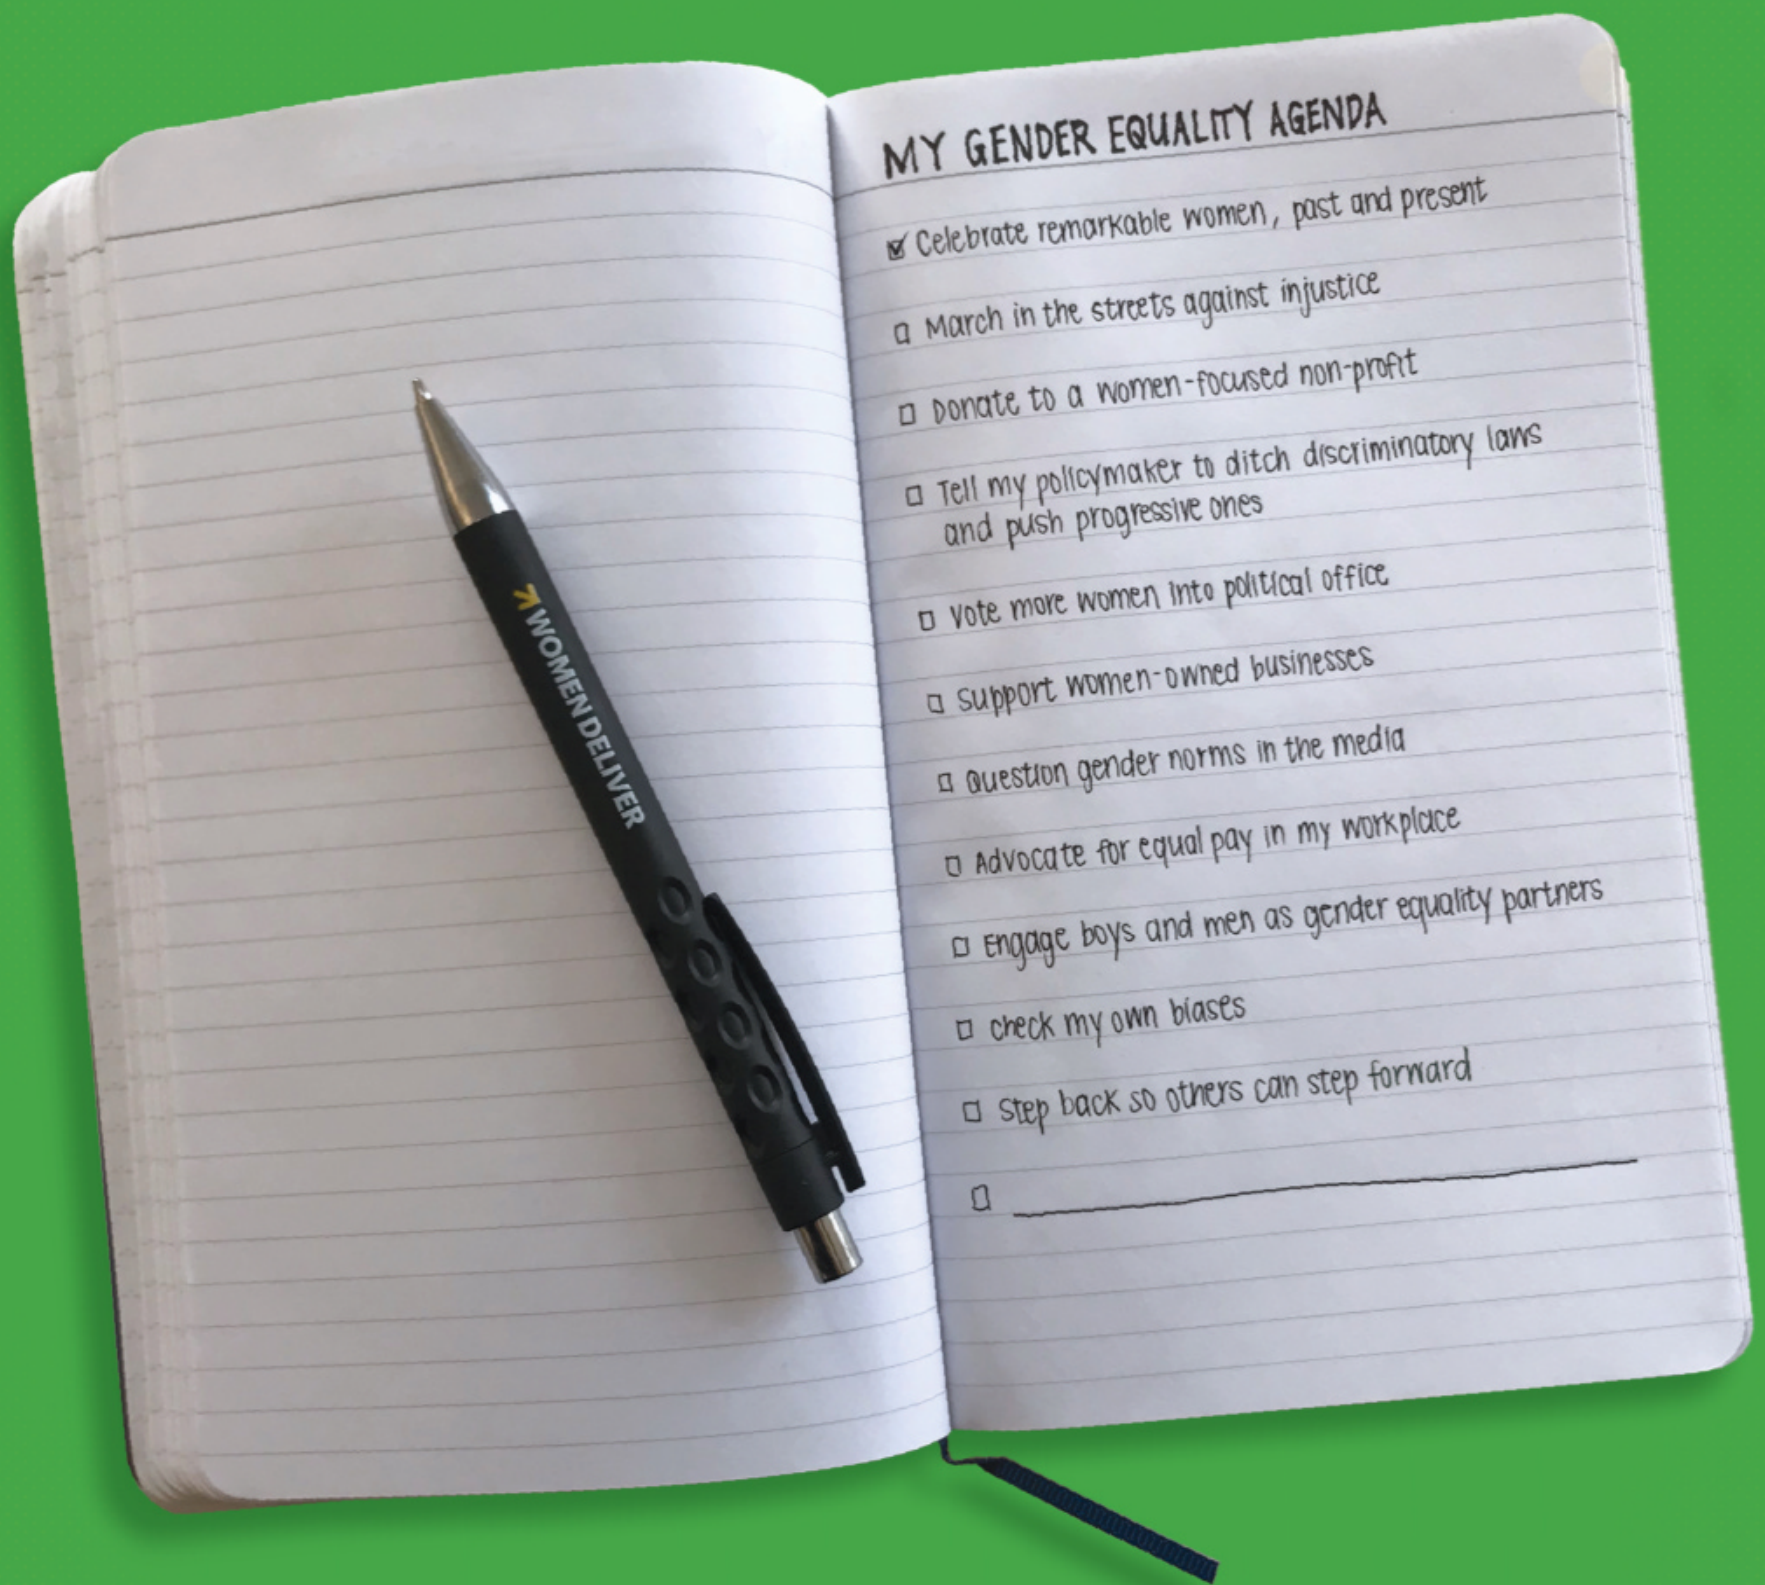 WOMEN DELIVER
MY GENDER EQUALITY AGENDA
Celebrate remarkable women, past and present
March in the streets against injustice
Donate to a women-focused non-profit
Tell my policymaker to ditch discriminatory laws
and push progressive ones
Vote more women into political office
Support women-owned businesses
Question gender norms in the media
Advocate for equal pay in my workplace
Engage boys and men as gender equality partners
check my own biases
Step back so others can step forward